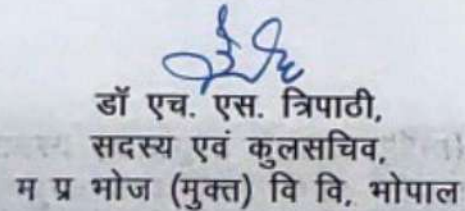 डॉ एच. एस. त्रिपाठी,
सदस्य एवं कुलसचिव,
म प्र भोज (मुक्त) वि वि, भोपाल